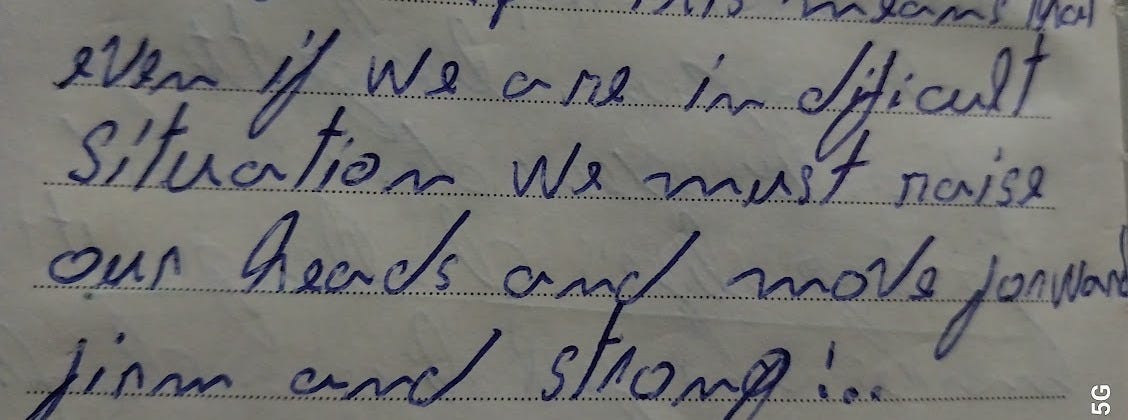 this means that
even if we are in dificult
situation we must raise
our heads and move forward
firm and strong!..
5G